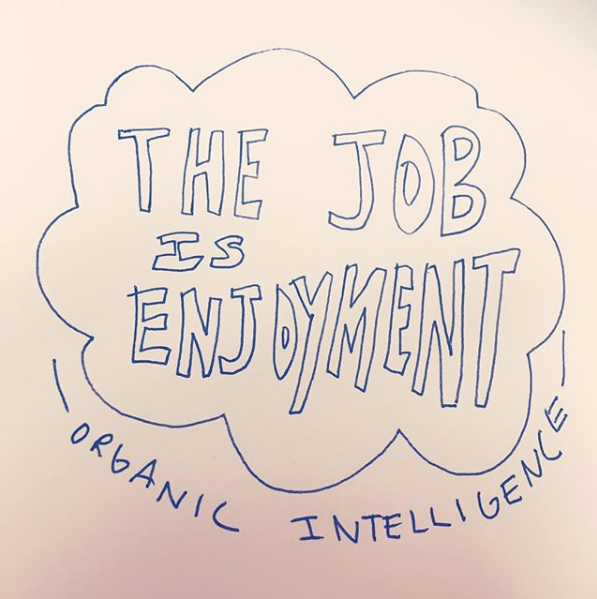 THE JOB
IS
ENJOYMENT
ORGANIC INTELLIGENCE